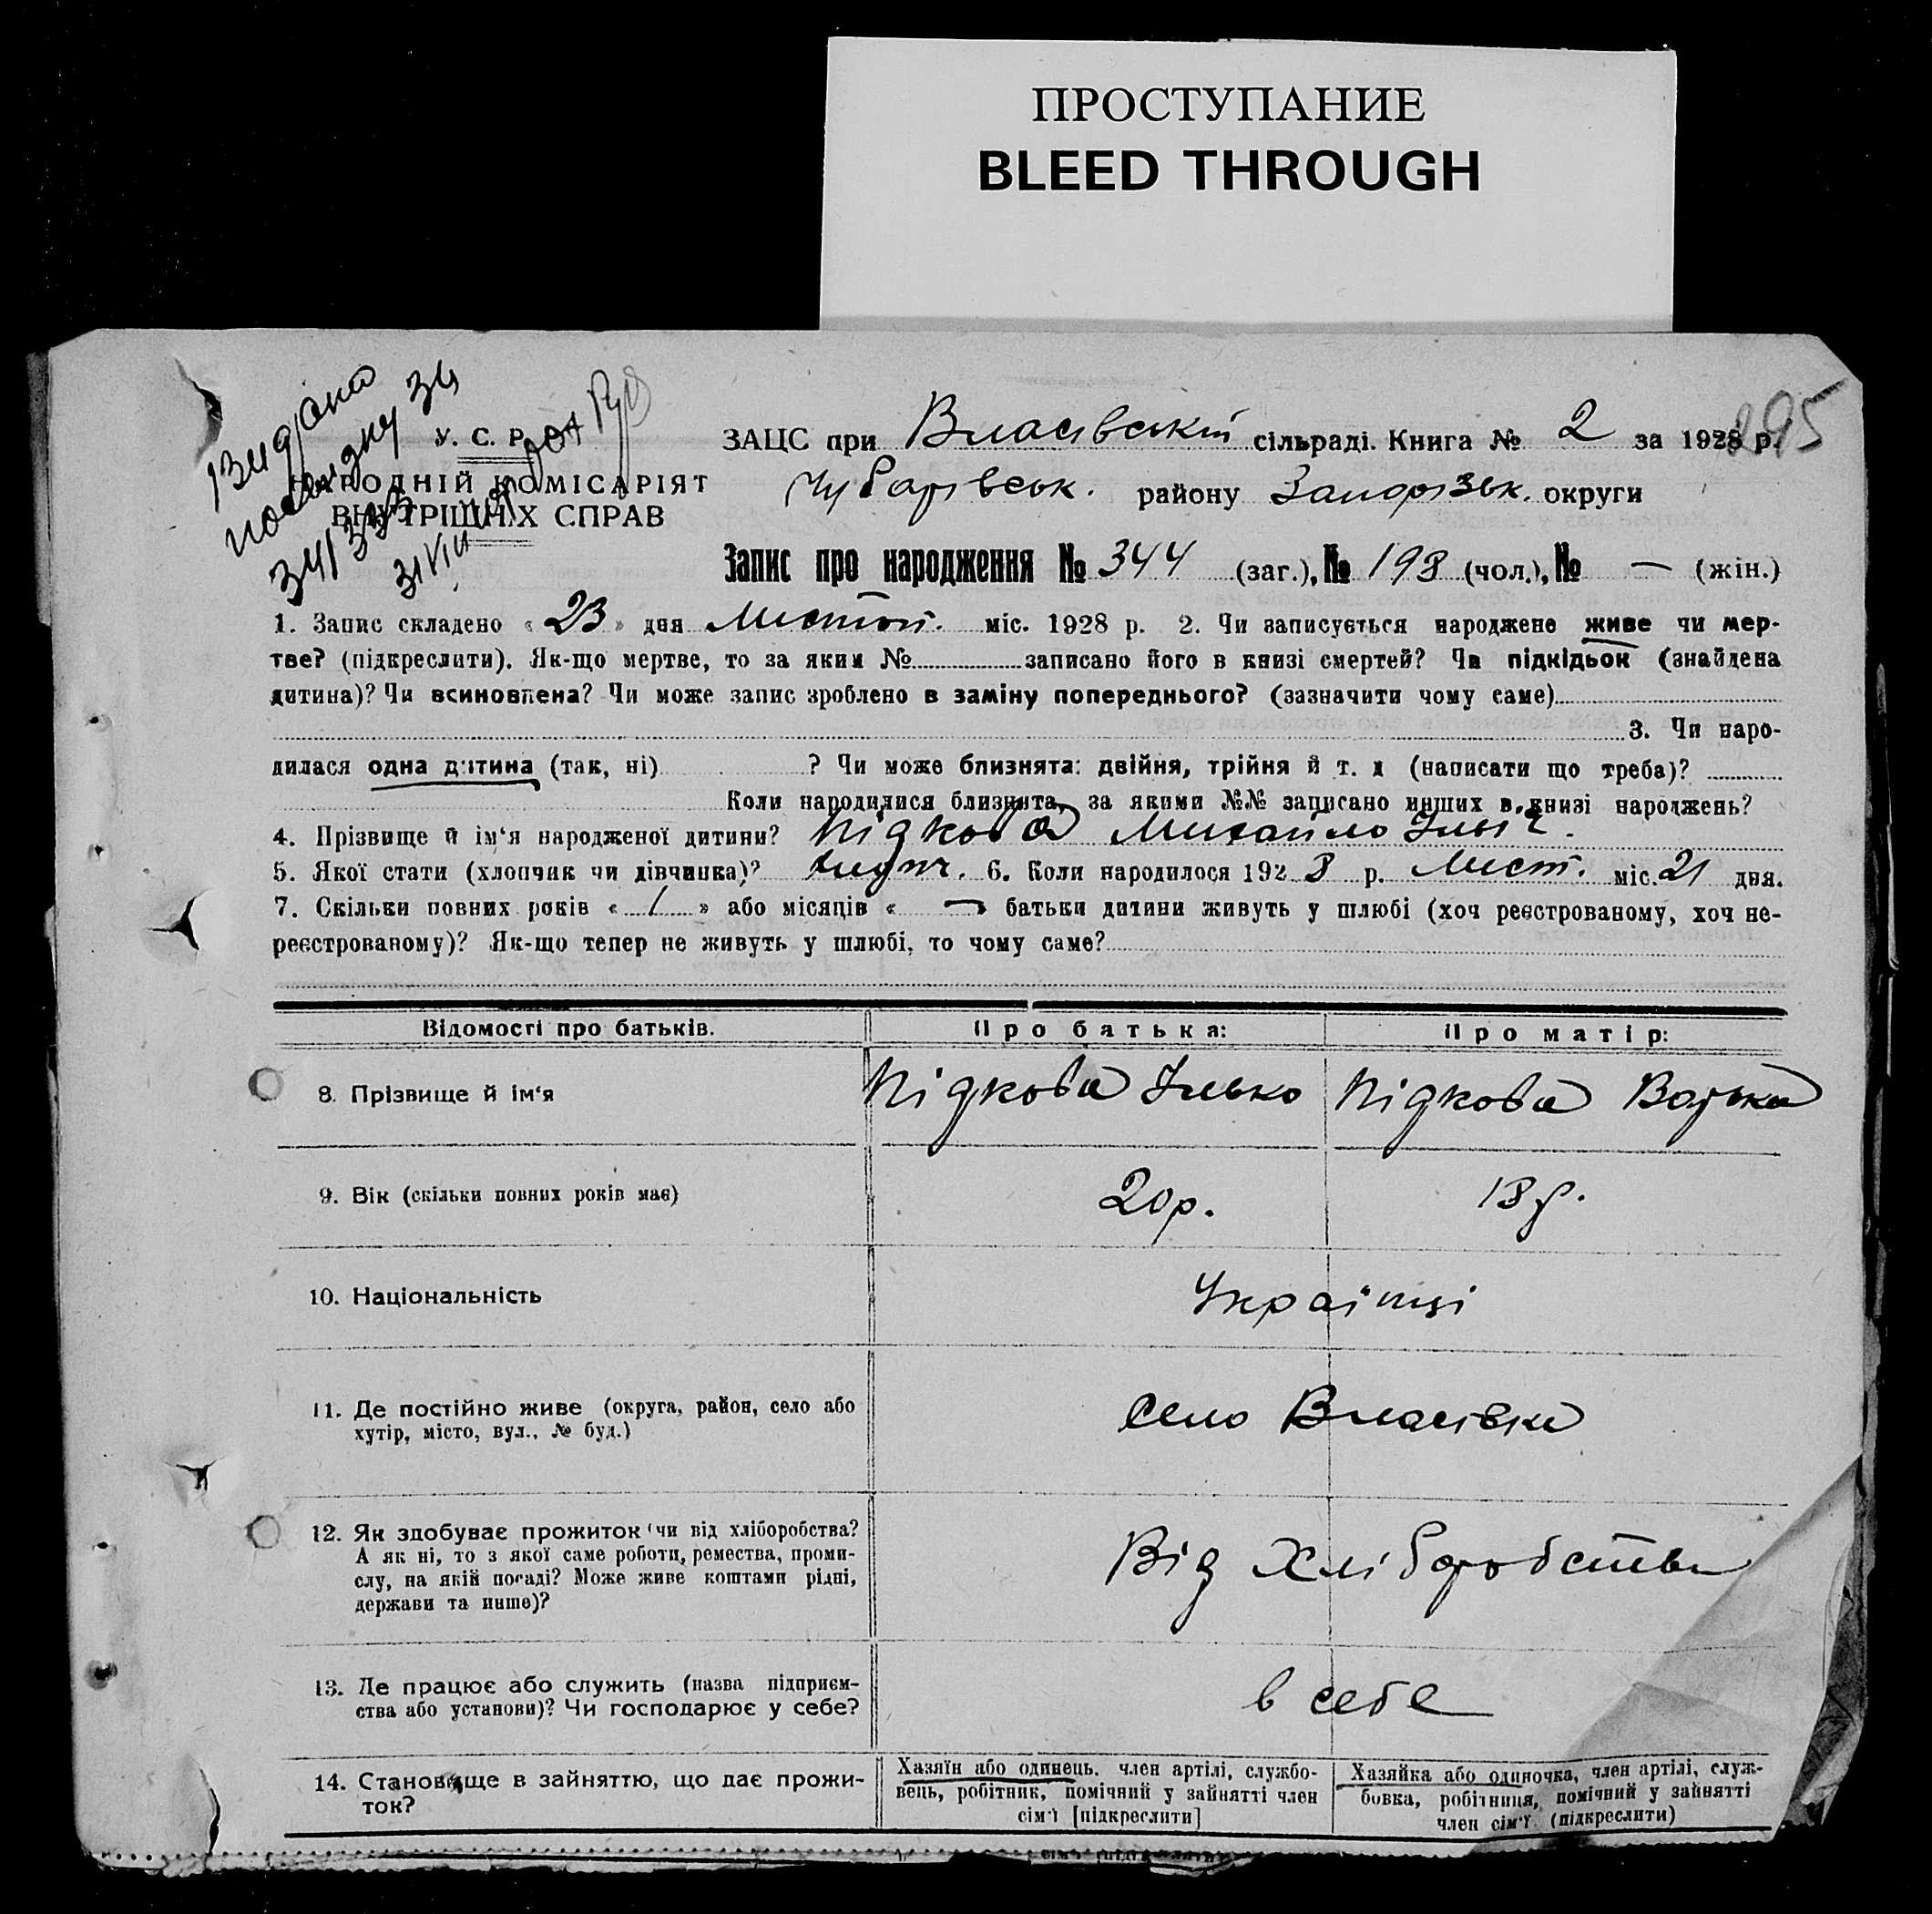 ПРОСТУПАНИЕ
BLEED THROUGH
295
Видано
посвідку за
У. С. Р. Р.
НАРОДНІЙ КОМІСАРІЯТ
ВНУТРІШНІХ СПРАВ
ЗАЦС при Власівській сільраді. Книга № 2 за 1928 р.
Чубарівськ. району Запорізьк. округи
Запис про народження № 344 (заг.), № 198 (чол.), № — (жін.)
1. Запис складено « 23 » дня Листоп. міс. 1928 р. 2. Чи записується народжене живе чи мер-
тве? (підкреслити). Як-що мертве, то за яким № записано його в книзі смертей? Чи підкідьок (знайдена
дитина)? Чи всиновлена? Чи може запис зроблено в заміну попереднього? (зазначити чому саме)
3. Чи наро-
дилася одна дитина (так, ні) ? Чи може близнята: двійня, трійня й т. д (написати що треба)?
Коли народилися близнята, за якими №№ записано инших в книзі народжень?
4. Прізвище й ім‘я народженої дитини? Підкова Михайло Ільїч.
5. Якої стати (хлопчик чи дівчинка)? 6. Коли народилося 1928 р. Лист. міс. 21 дня.
7. Скільки повних років « 1 » або місяців « — » батьки дитини живуть у шлюбі (хоч реєстрованому, хоч не-
реєстрованому)? Як-що тепер не живуть у шлюбі, то чому саме?
Відомості про батьків. Про батька: Про матір:
8. Прізвище й ім‘я Підкова Ілько Підкова Варька
9. Вік (скільки повних років має) 20 р. 18 р.
10. Національність Українці
11. Де постійно живе (округа, район, село або
хутір, місто, вул., № буд.)
село Власівка
12. Як здобуває прожиток (чи від хліборобства?
А як ні, то з якої саме роботи, ремества, проми-
слу, на якій посаді? Може живе коштами рідні,
держави та инше)?
Від Хліборобства
13. Де працює або служить (назва підприєм-
ства або установи)? Чи господарює у себе?
в себе
14. Становище в зайняттю, що дає прожи-
ток?
Хазяїн або одинець, член артілі, службо-
вець, робітник, помічний у зайнятті член
сім‘ї [підкреслити]
Хазяйка або одиночка, член артілі, служ-
бовка, робітниця, помічний у зайнятті
член сім‘ї (підкреслити)